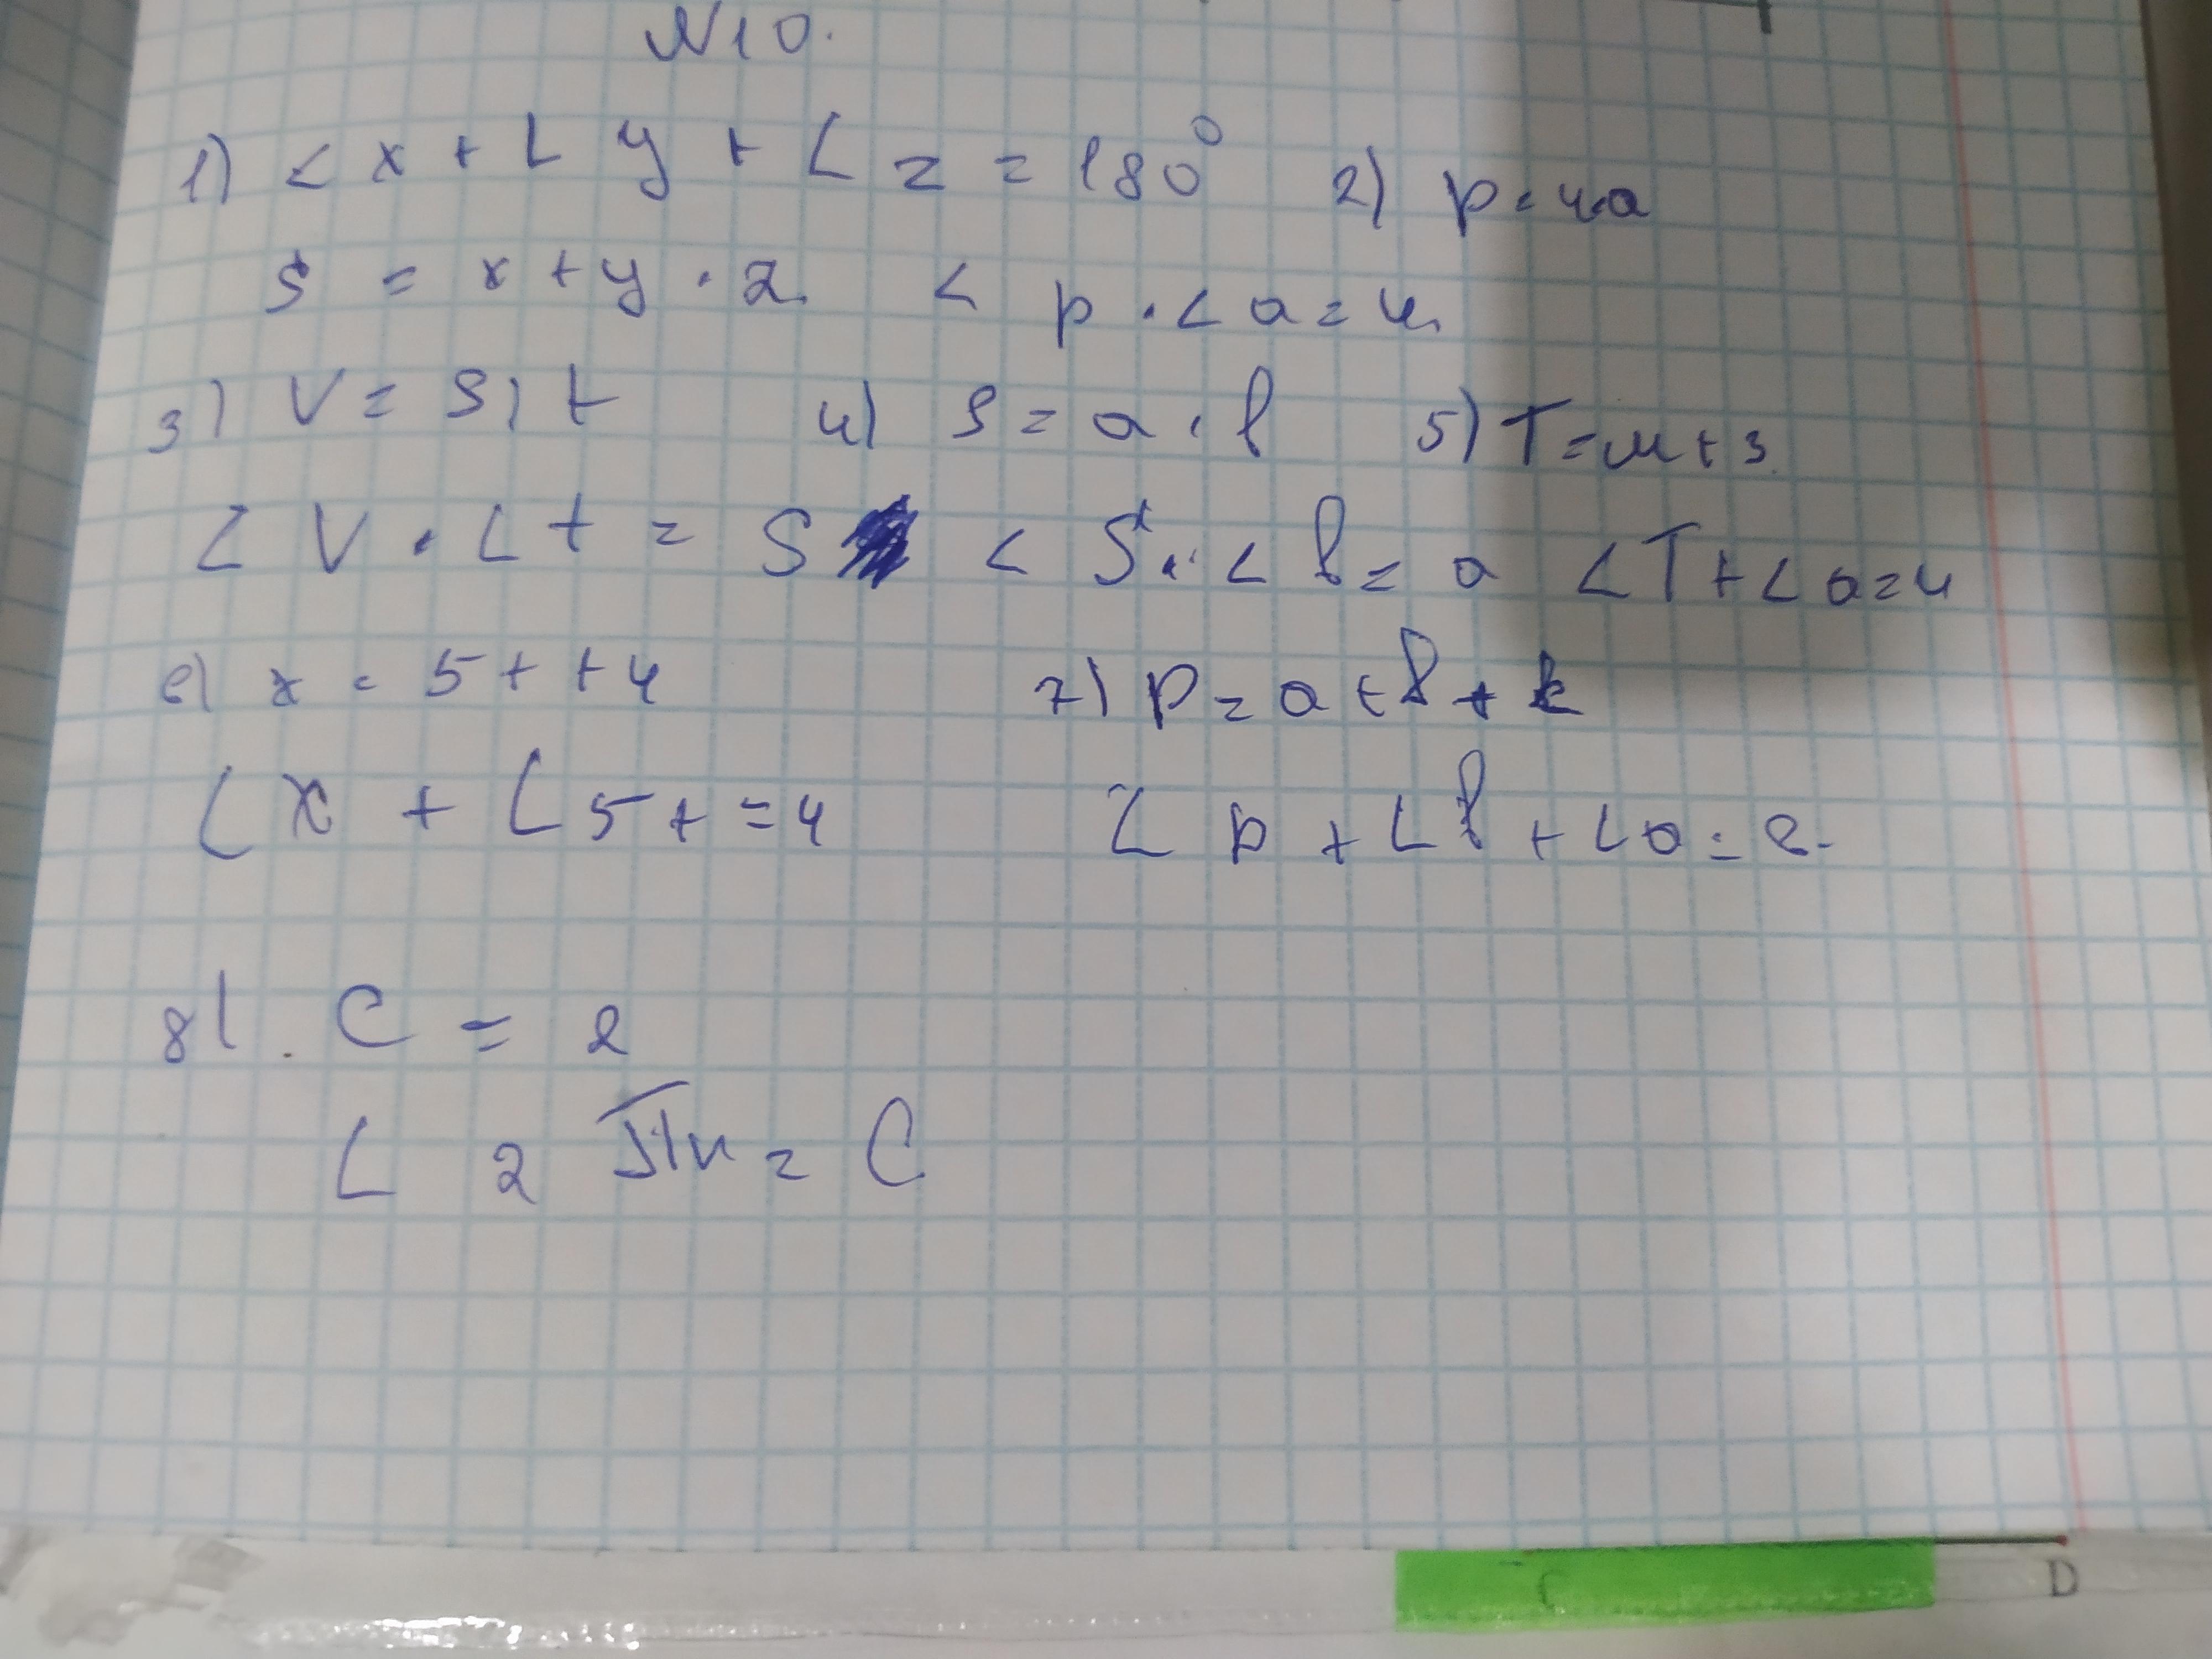 N10.
1) < x + ∠ y + ∠ z = 180° 2) p = 4a
S = x + y · z. < p · < a = 4.
3) V = S : t 4) S = a · b 5) T = м + 3.
∠ V · ∠ t = S < S · < b = a ∠ T + ∠ a = 4
6) x = 5 t + 4 7) P = a + b + k
∠ x + ∠ 5 t = 4 ∠ p + ∠ b + ∠ a = 2.
8) . C = 2
∠ 2 πr = C
C D